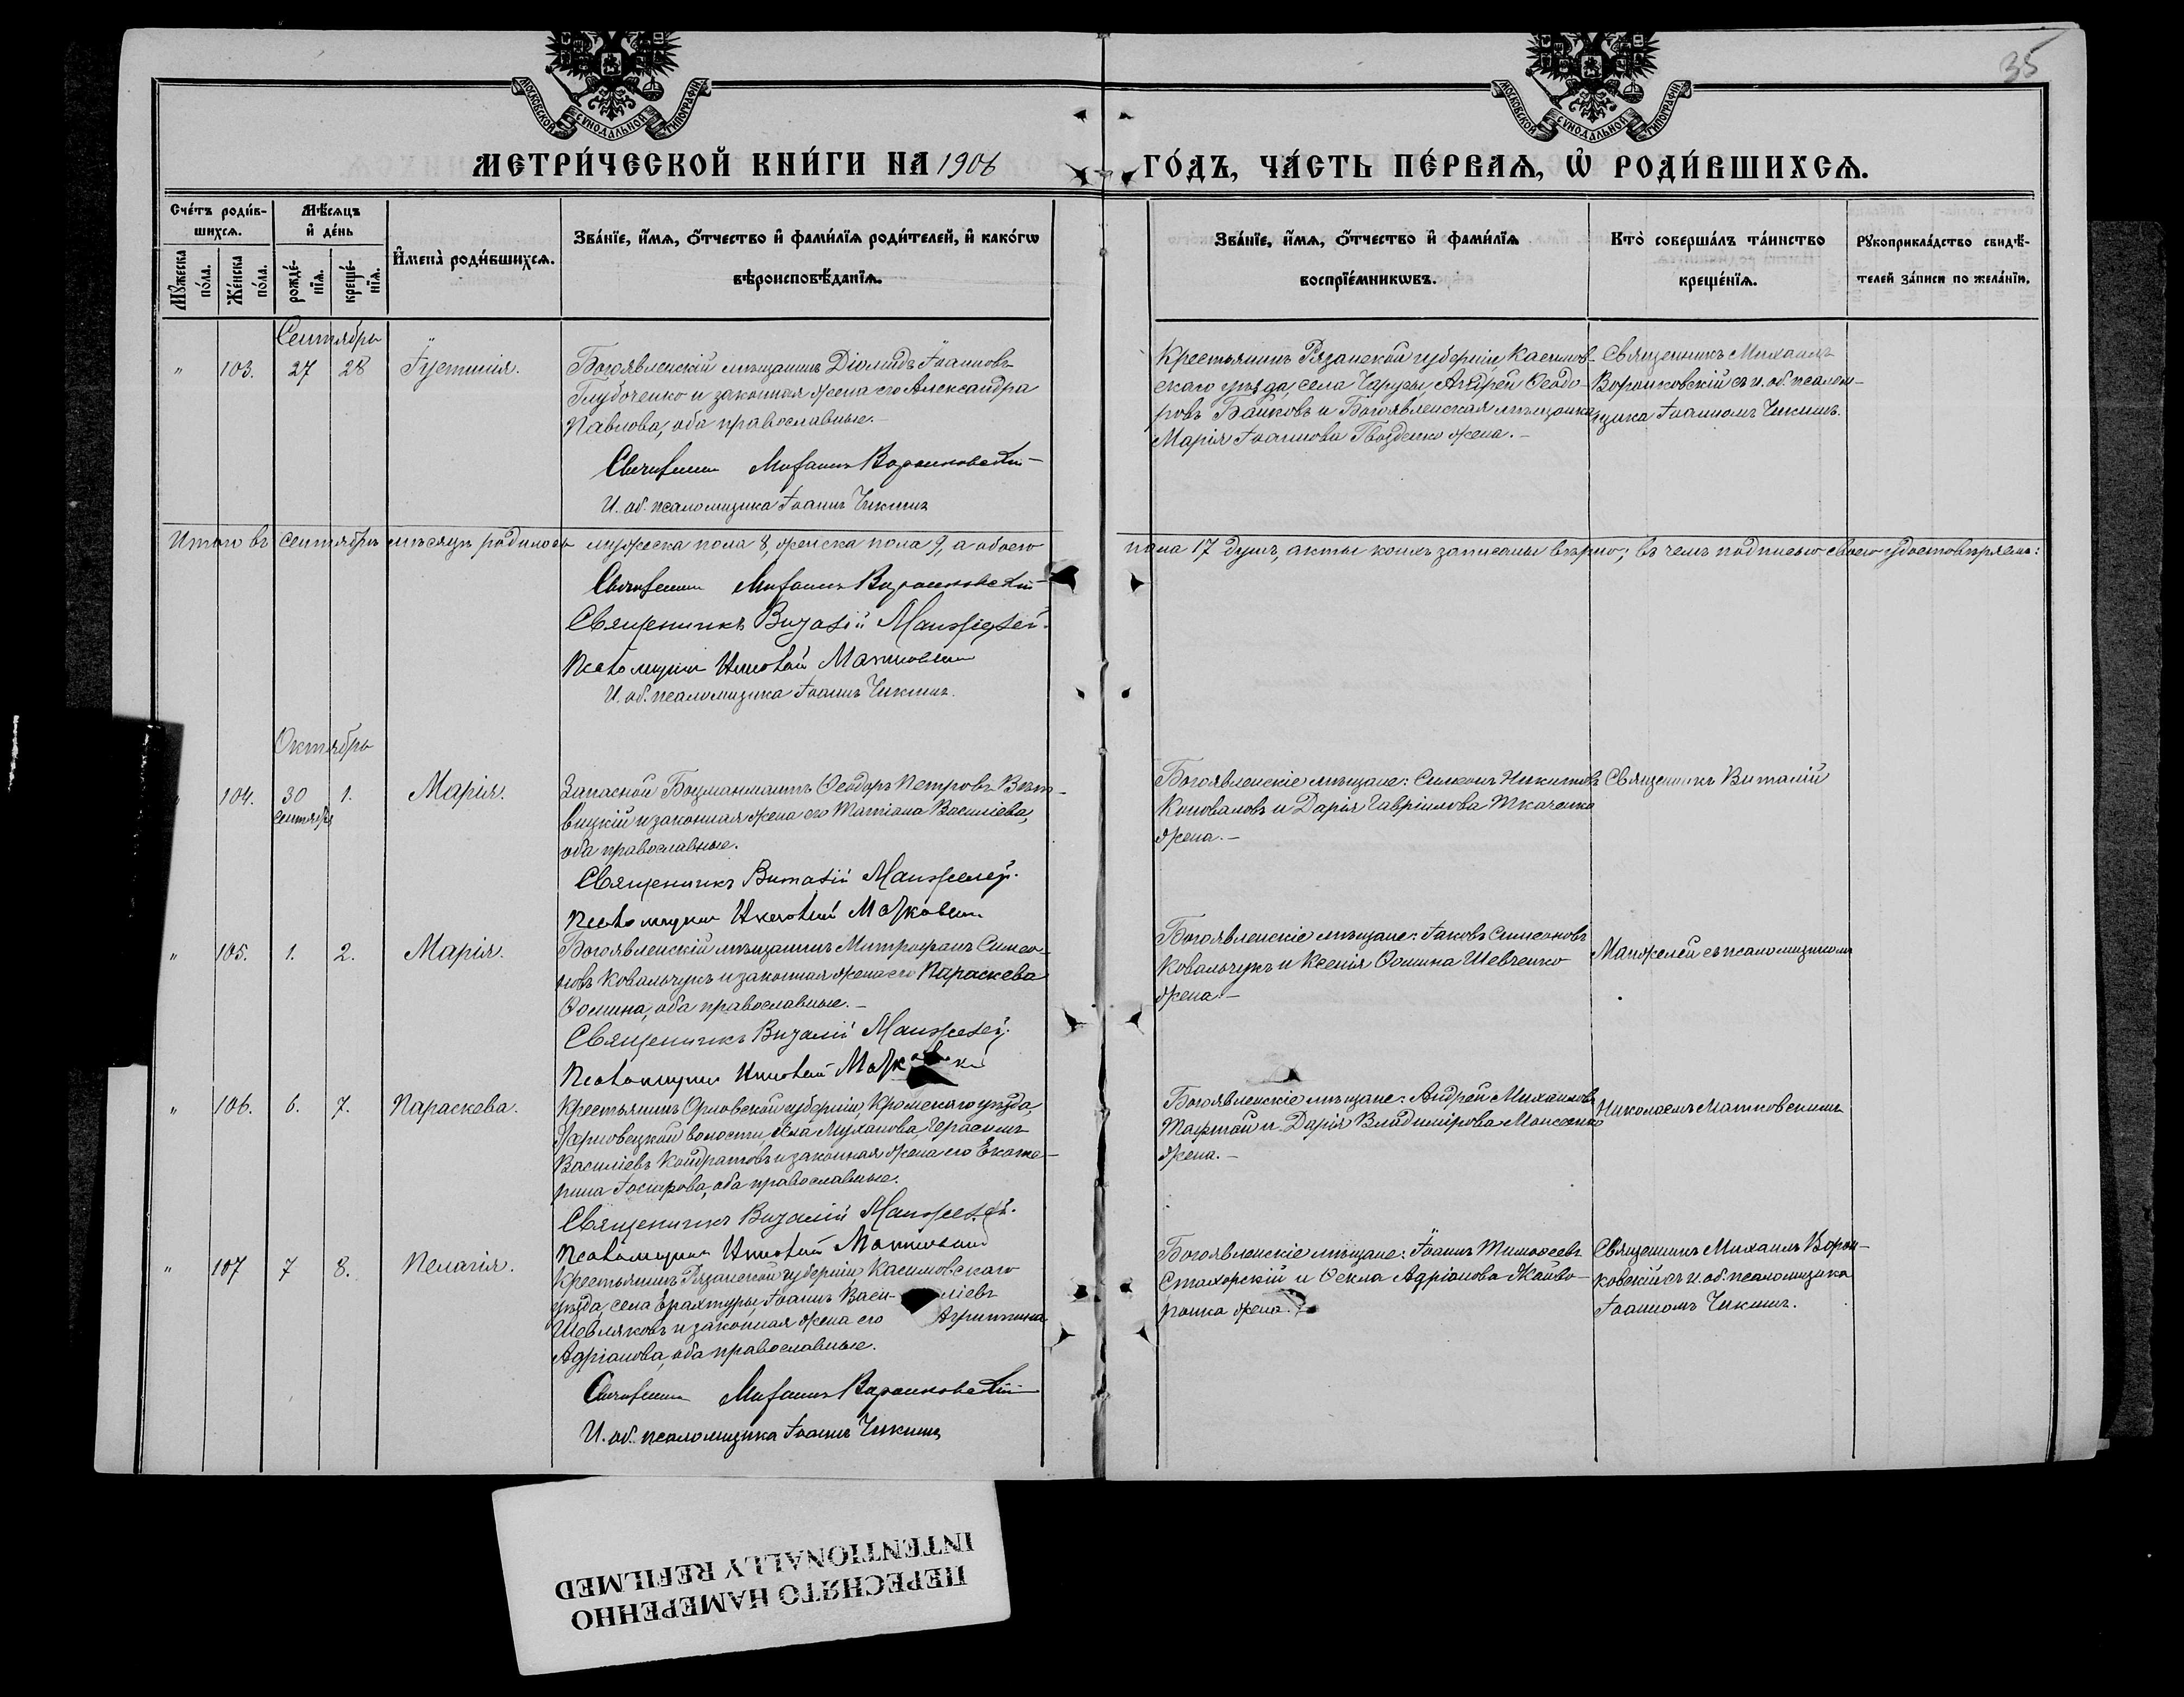 35
МОСКОВСКОЙ СѴНОДАЛЬНОЙ ТИПОГРАФІИ
МОСКОВСКОЙ СѴНОДАЛЬНОЙ ТИПОГРАФІИ
МЕТРИ́ЧЕСКОЙ КНИ́ГИ НА 1906 ГО́ДЪ, ЧА́СТЬ ПЕ́РВАѦ, Ѡ҆ РОДИ́ВШИХСѦ.
Сче́тъ роди́в-
шихсѧ.
Мꙋ́жеска
по́ла.
Же́нска
по́ла.
Мѣ́сѧцъ
и҆ де́нь
рожде́-
нїѧ.
креще́-
нїѧ.
И҆мена̀ роди́вшихсѧ.
Зва́нїе, и҆́мѧ, ѻ҆́тчество и҆ фами́лїѧ роди́телей, и҆ како́гѡ
вѣроисповѣ́данїѧ.
Зва́нїе, и҆́мѧ, ѻ҆́тчество и҆ фами́лїѧ
воспрїе́мникѡвъ.
Кто̀ соверша́лъ та́инство
креще́нїѧ.
Рꙋкоприкла́дство свидѣ́-
телей за́писи по жела́нїю.
Сентябрь
" 103. 27 28 Іустинія.
Богоявленскій мѣщанинъ Діомидъ Іоанновъ
Глубоченко и законная жена его Александра
Павлова, оба православные.-
Священникъ Михаилъ Воронковскій
И. об. псаломщика Іоаннъ Чикинъ
Крестьянинъ Рязанской губерніи, Касимов-
скаго уѣзда, села Чарусы, Андрей Ѳеодо-
ровъ Байковъ и Богоявленская мѣщанка
Марія Іоаннова Гвозденко жена.-
Священникъ Михаилъ
Воронковскій съ и. об. псалом-
щика Іоанномъ Чикинъ.
Итого въ сентябрѣ мѣсяцѣ родилось мужеска пола 8, женска пола 9, а обоего пола 17 душъ, акты коихъ записаны вѣрно; въ чемъ подписью своею удостовѣряемъ:
Священникъ Михаилъ Воронковскій
Священникъ Виталій Манжелей.
Псаломщикъ Николай Матковскій
И. об. псаломщика Іоаннъ Чикинъ.
Октябрь
" 104. 30 1. Марія.
сентября
Запасной Боцманматъ Ѳеодоръ Петровъ
и законная жена его Татіана Василіева,
оба православные.
Священникъ Виталій Манжелей.
Псаломщикъ Николай Матковскій
Богоявленскіе мѣщане: Симеонъ Никитовъ
Коноваловъ и Дарія Гавріилова Ткаченко
жена.-
Священникъ Виталій
" 105. 1. 2. Марія.
Богоявленскій мѣщанинъ Митрофанъ Симео-
новъ Ковальчукъ и законная жена его Параскева
Ѳомина, оба православные.-
Священникъ Виталій Манжелей.
Псаломщикъ Николай Матковскій
Богоявленскіе мѣщане: Іаковъ Симеоновъ
Ковальчукъ и Ксенія Ѳомина Шевченко
жена.-
Манжелей съ псаломщикомъ
" 106. 6. 7. Параскева.
Крестьянинъ Орловской губерніи, Кромскаго уѣзда,
волости, села Муханова, Герасимъ
Василіевъ Кондратовъ и законная жена его Екате-
рина Іосифова, оба православные.
Священникъ Виталій Манжелей.
Псаломщикъ Николай Матковскій
Богоявленскіе мѣщане: Андрей Михаиловъ
и Дарія Владимірова Моисеенко
жена.-
Николаемъ Матковскимъ
" 107 7 8. Пелагія.
Крестьянинъ Рязанской губерніи Касимовскаго
уѣзда, села Ерахтуры, Іоаннъ Васи-ліевъ
Шевляковъ и законная жена его Агрипина
Адріанова, оба православные.
Священникъ Михаилъ Воронковскій
И. об. псаломщика Іоаннъ Чикинъ
Богоявленскіе мѣщане: Іоаннъ Тимоѳеевъ
Стахорскій и Ѳекла Адріанова Жаиво-
ронка жена.
Священникъ Михаилъ Ворон-
ковскій съ и. об. псаломщика
Іоанномъ Чикинъ.
ПЕРЕСНЯТО НАМЕРЕННО
INTENTIONALLY REFILMED